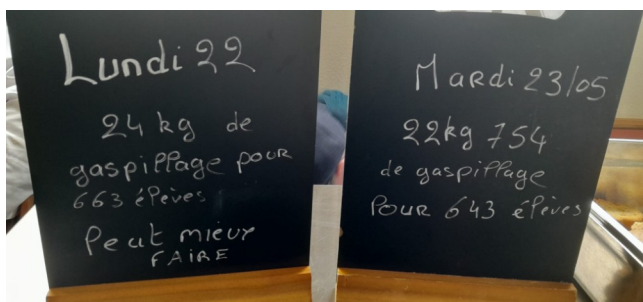 Lundi 22
24 kg de
gaspillage pour
663 élèves
Peut mieux
FAIRE
Mardi 23/05
22kg 754
de gaspillage
Pour 643 élèves